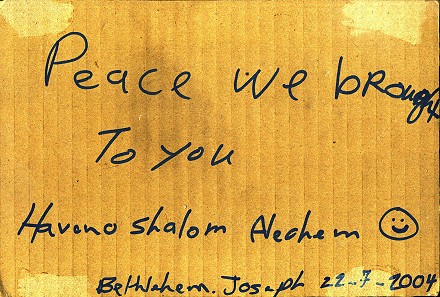 Peace we brought
To you
Haveno shalom Alechem
Bethlehem. Joseph 22-7-2004